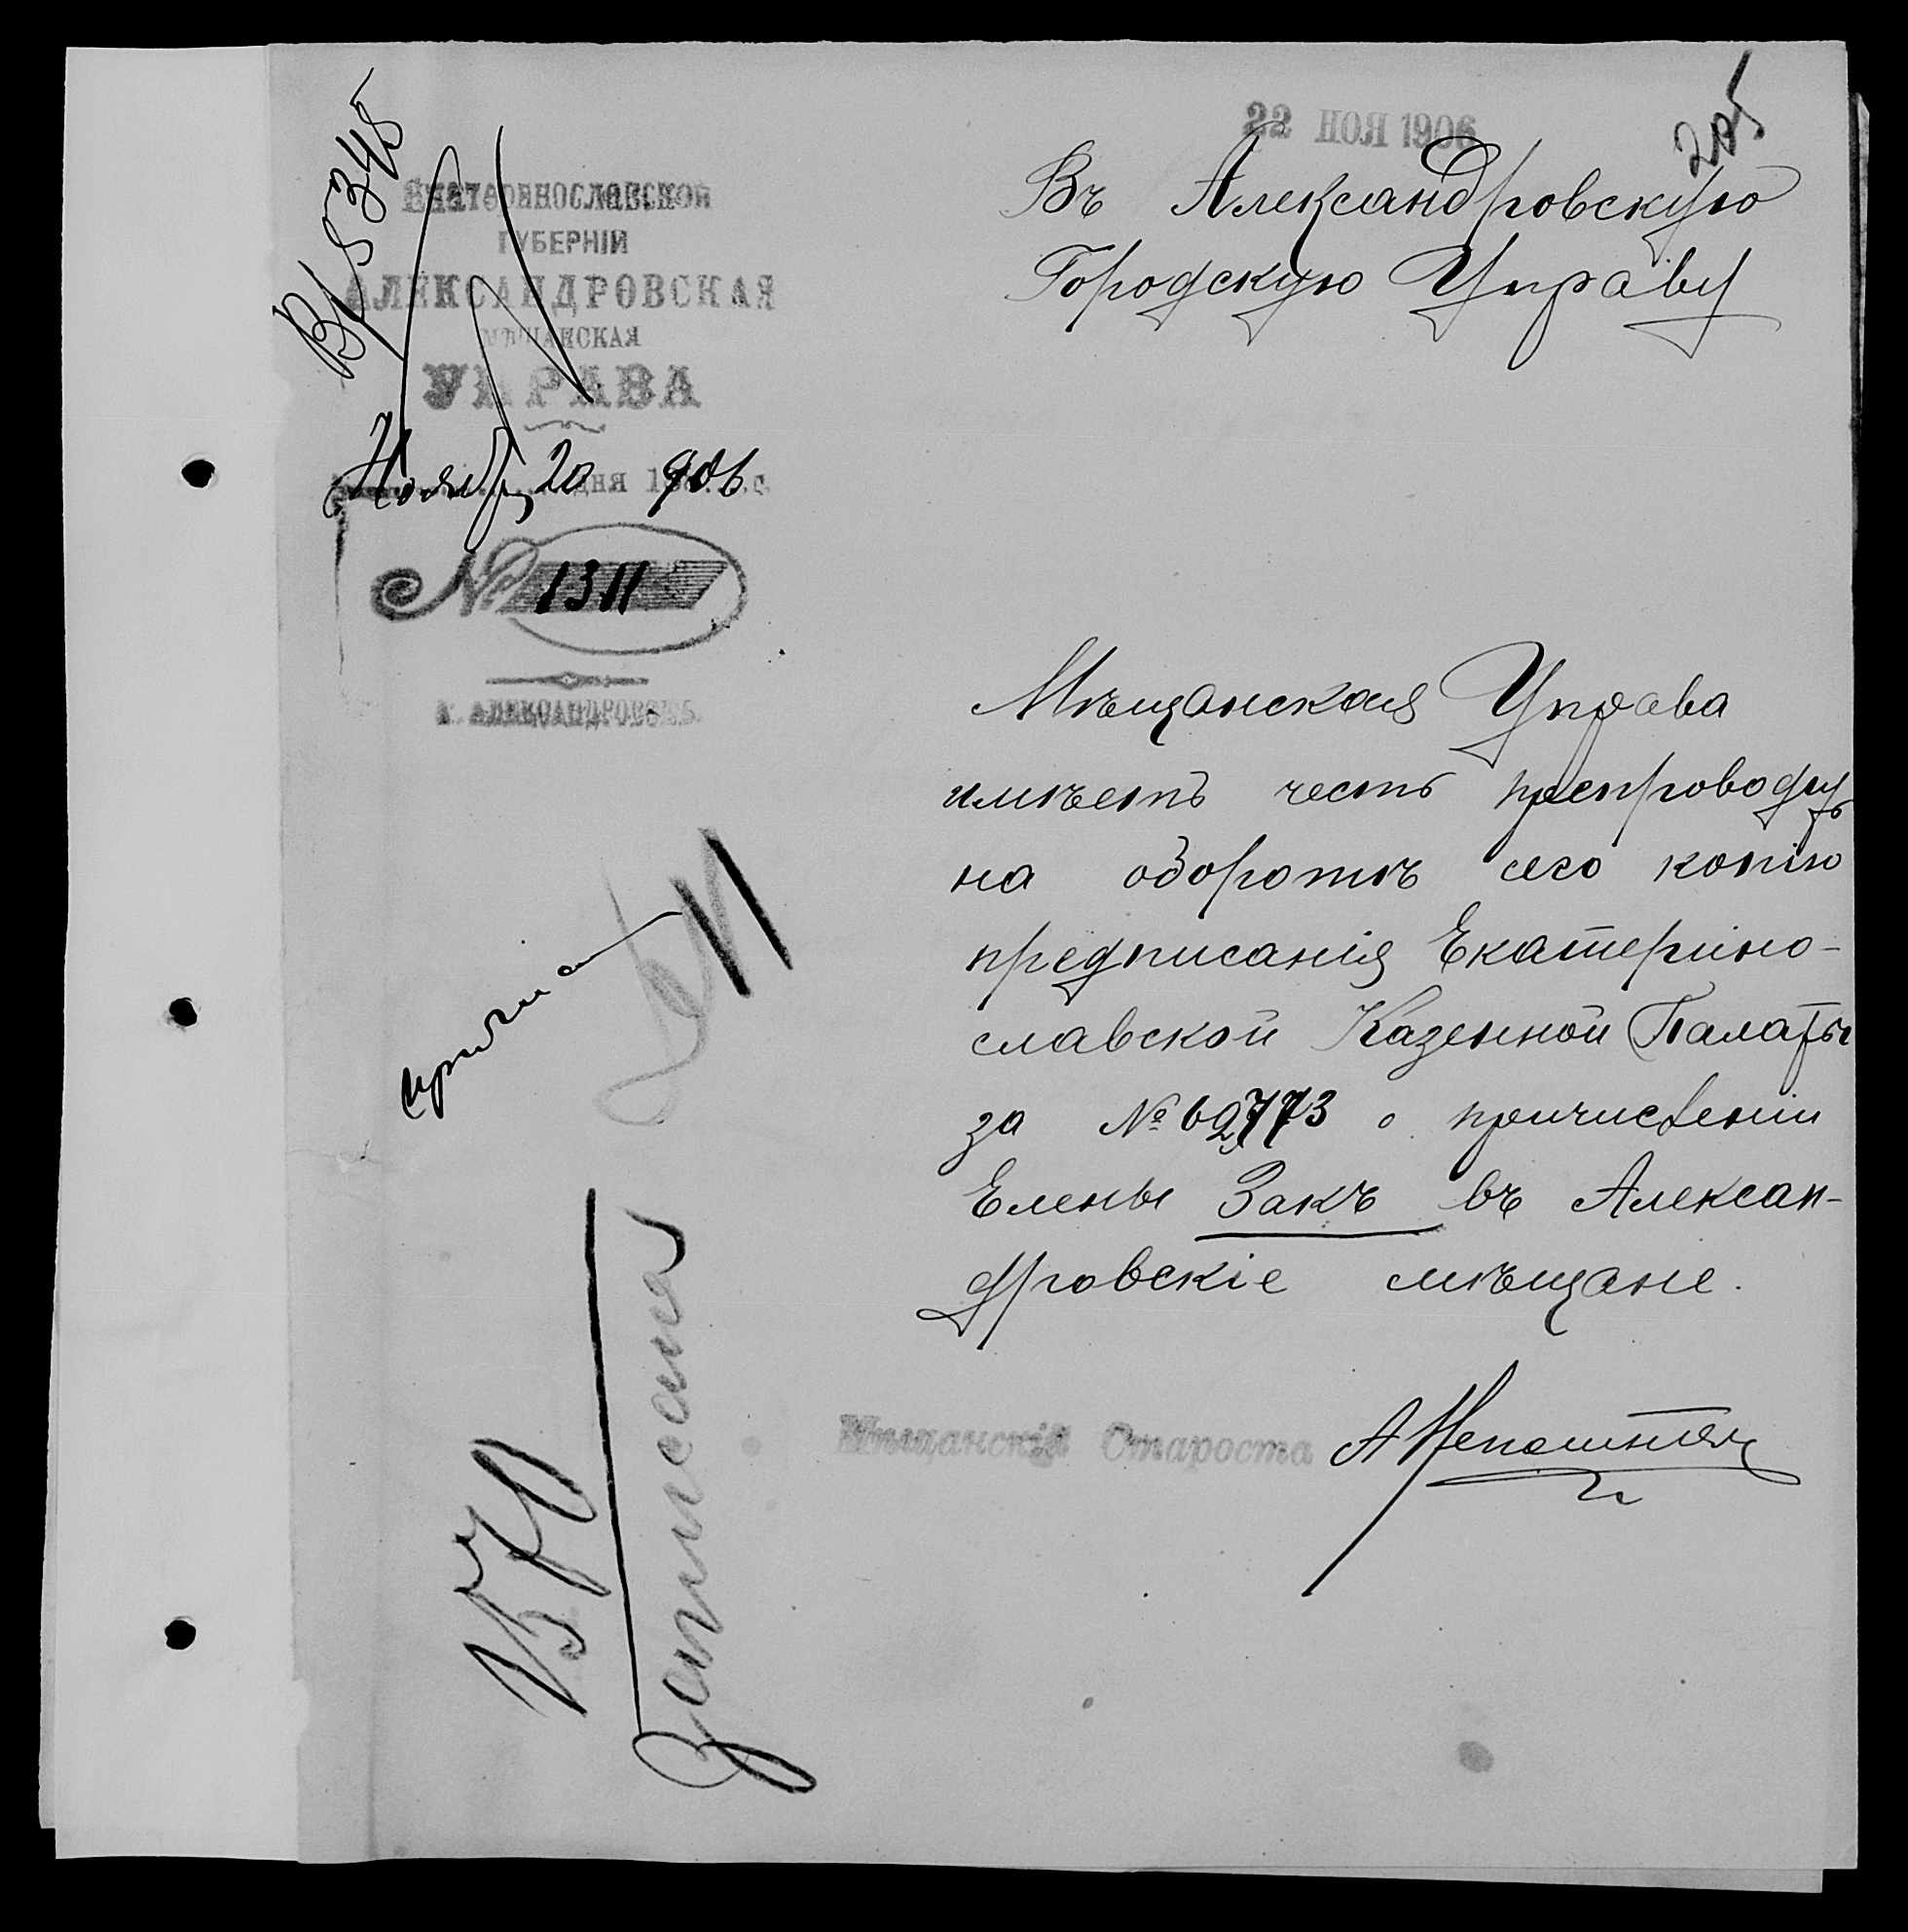 22 НОЯ 1906
205
Вх 5345
Екатеринославской
ГУБЕРНІИ
АЛЕКСАНДРОВСКАЯ
МѢЩАНСКАЯ
УПРАВА
Ноября 20 дня 1906 г.
№ 1311
г. АЛЕКСАНДРОВСКЪ.
Въ Александровскую
Городскую Управу
Мѣщанская Управа
имѣетъ честь препроводить
на оборотѣ сего копію
предписанія Екатерино-
славской Казенной Палаты
за № 62773 о причисленіи
Елены Закъ въ Алексан-
дровскіе мѣщане.
Мѣщанскій Староста
570
Записана